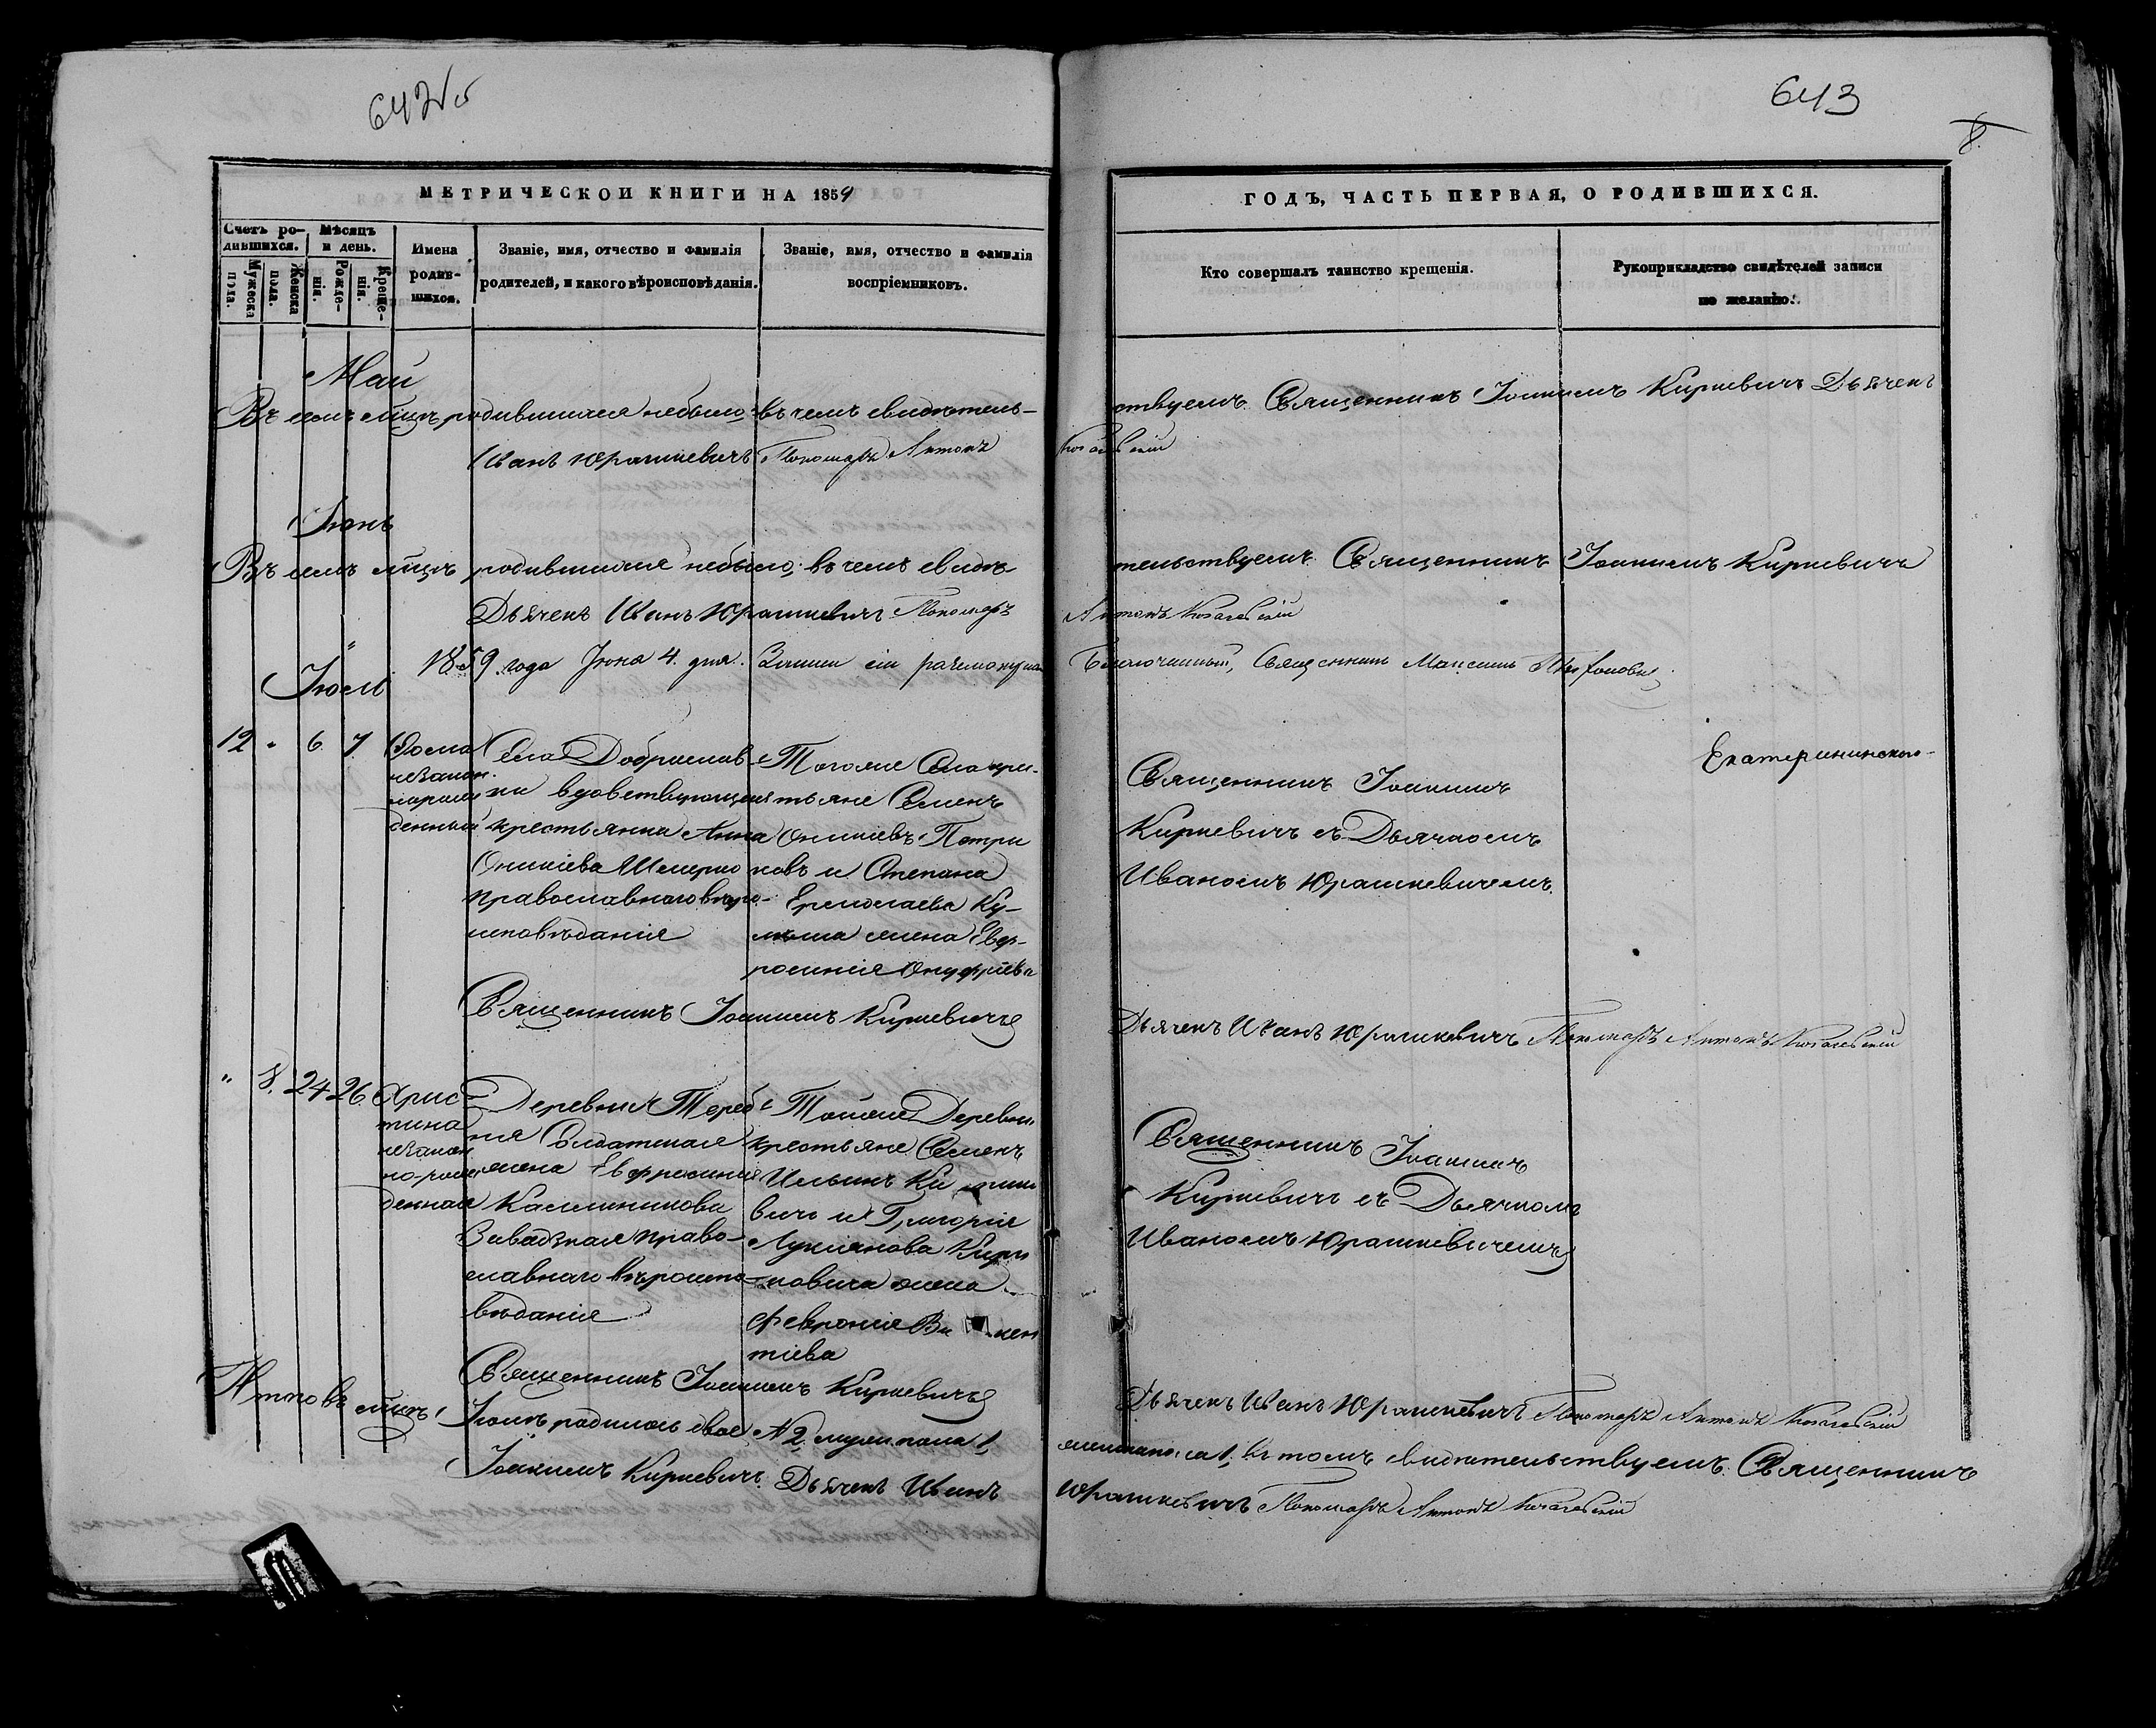 642об
643
8.
МЕТРИЧЕСКОЙ КНИГИ НА 1859
ГОДЪ, ЧАСТЬ ПЕРВАЯ, О РОДИВШИХСЯ.
Счетъ родившихся.
Мужеска пола.
Женска пола.
Мѣсяцъ и день.
Рожденія.
Крещенія.
Имена родившихся.
Званіе, имя, отчество и фамилія
родителей, и какого вѣроисповѣданія.
Званіе, имя, отчество и фамилія
воспріемниковъ.
Кто совершалъ таинство крещенія.
Рукоприкладство свидѣтелей записи
по желанію.
Май
Въ семъ мцѣ родившихся небыло, въ чемъ свидѣтель-
ствуемъ. Священникъ Іоакимъ Киркевичъ Дьячекъ
Иванъ Юрашкевичъ Пономарь Антонъ
Іюнь
Въ семъ мцѣ родившихся небыло, въ чемъ свидѣ-
тельствуемъ. Священникъ Іоакимъ Киркевичъ
Дьячекъ Иванъ Юрашкевичъ Пономарь
Антонъ
1859 года Іюня 4. дня.
Благочинный, Священникъ Максимъ
Іюль
12 " 6 7
Фома
незакон-
норож-
денный
Села
вдовствующая
крестьянка Анна
Оникіева
православнаго вѣро-
исповѣданія
Тогоже Села кре-
стьяне Семенъ
Оникіевъ Петри
ковъ и Степана
Ермолаева Ку-
жена Евф-
росинія Онуфріева
Священникъ Іоакимъ
Киркевичъ съ Дьячкомъ
Иваномъ Юрашкевичемъ.
Екатерининского
Священникъ Іоакимъ Киркевичъ
Дьячекъ Иванъ Юрашкевичъ Пономарь Антонъ
" 8. 24 26
Хрис-
тина
незакон
но-рож
денная
Деревни Тереб-
ня Солдатская
жена Евфросинія
Калинникова
Завадзкая право-
славнаго вѣроиспо-
вѣданія
Тойже Деревни
крестьяне Семенъ
Ильинъ
вичъ и Григорія
Лукьянова Кири
ковича жена
Февронія Ви кен
тіева
Священникъ Іоакимъ
Киркевичъ съ Дьячкомъ
Иваномъ Юрашкевичемъ
Священникъ Іоакимъ Киркевичъ
Дьячекъ Иванъ Юрашкевичъ Пономарь Антонъ
Итого въ мцѣ Іюлѣ родилось двое № 2, муж. пола 1,
женскаго пола 1, въ томъ свидѣтельствуемъ. Священникъ
Іоакимъ Киркевичъ. Дьячекъ Иванъ
Юрашкевичъ Пономарь Антонъ